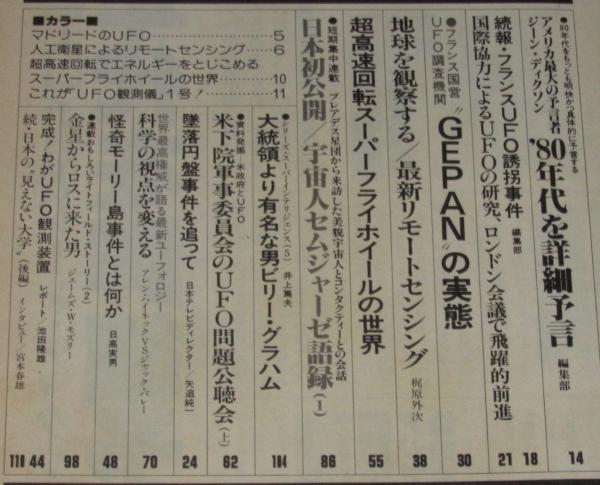 ■カラー■
マドリードのUFO 5
人工衛星によるリモートセンシング 6
超高速回転でエネルギーをとじこめる
スーパーフライホイールの世界 10
これが“UFO観測儀”1号! 11
●80年代をもっとも明快かつ具体的に予言する
アメリカ最大の予言者
ジーン・ディクソン
'80年代を詳細予言 編集部 14
続報・フランスUFO誘拐事件 編集部 18
国際協力によるUFOの研究、ロンドン会議で飛躍的前進 21
●フランス国営
UFO調査機関
“GEPAN”の実態 30
地球を観察する/最新リモートセンシング 梶原外次 38
超高速回転スーパーフライホイールの世界 55
●短期集中連載 プレアデス星団から来訪した美貌宇宙人とコンタクティーとの会話
日本初公開/宇宙人セムジャーゼ語録(1) 86
●シリーズ・スーパーインテリジェンス(5) 井上篤夫
大統領より有名な男ビリー・グラハム 104
●資料発掘 米政府とUFO
米下院軍事委員会のUFO問題公聴会(上) 62
墜落円盤事件を追って 日本テレビディレクター/矢追純一 24
世界最高権威が語る最新ユーフォロジー
科学の視点を変える アレン・ハイネックVSジャック・バレー 70
怪奇モーリー島事件とは何か 日高実男 48
●連載おもしろいライトフィールド・ストーリー(2)
金星からロスに来た男 ジェームズ・W・モズリー 98
完成!わがUFO観測装置 レポート/池田隆雄 44
続・日本の“見えない大学”(後編) インタビュー/宮本春雄 110